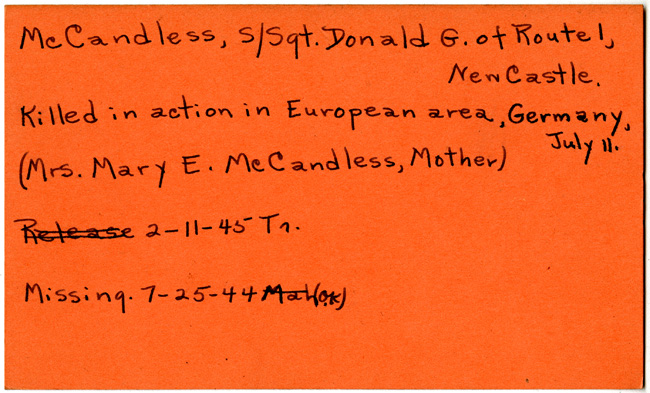 McCandless, S/Sgt. Donald G. of Route 1,
New Castle.
Killed in action in European area, Germany,
July 11.
(Mrs. Mary E. McCandless, Mother)
Release 2-11-45 Tr.
Missing. 7-25-44 Mah(OK)